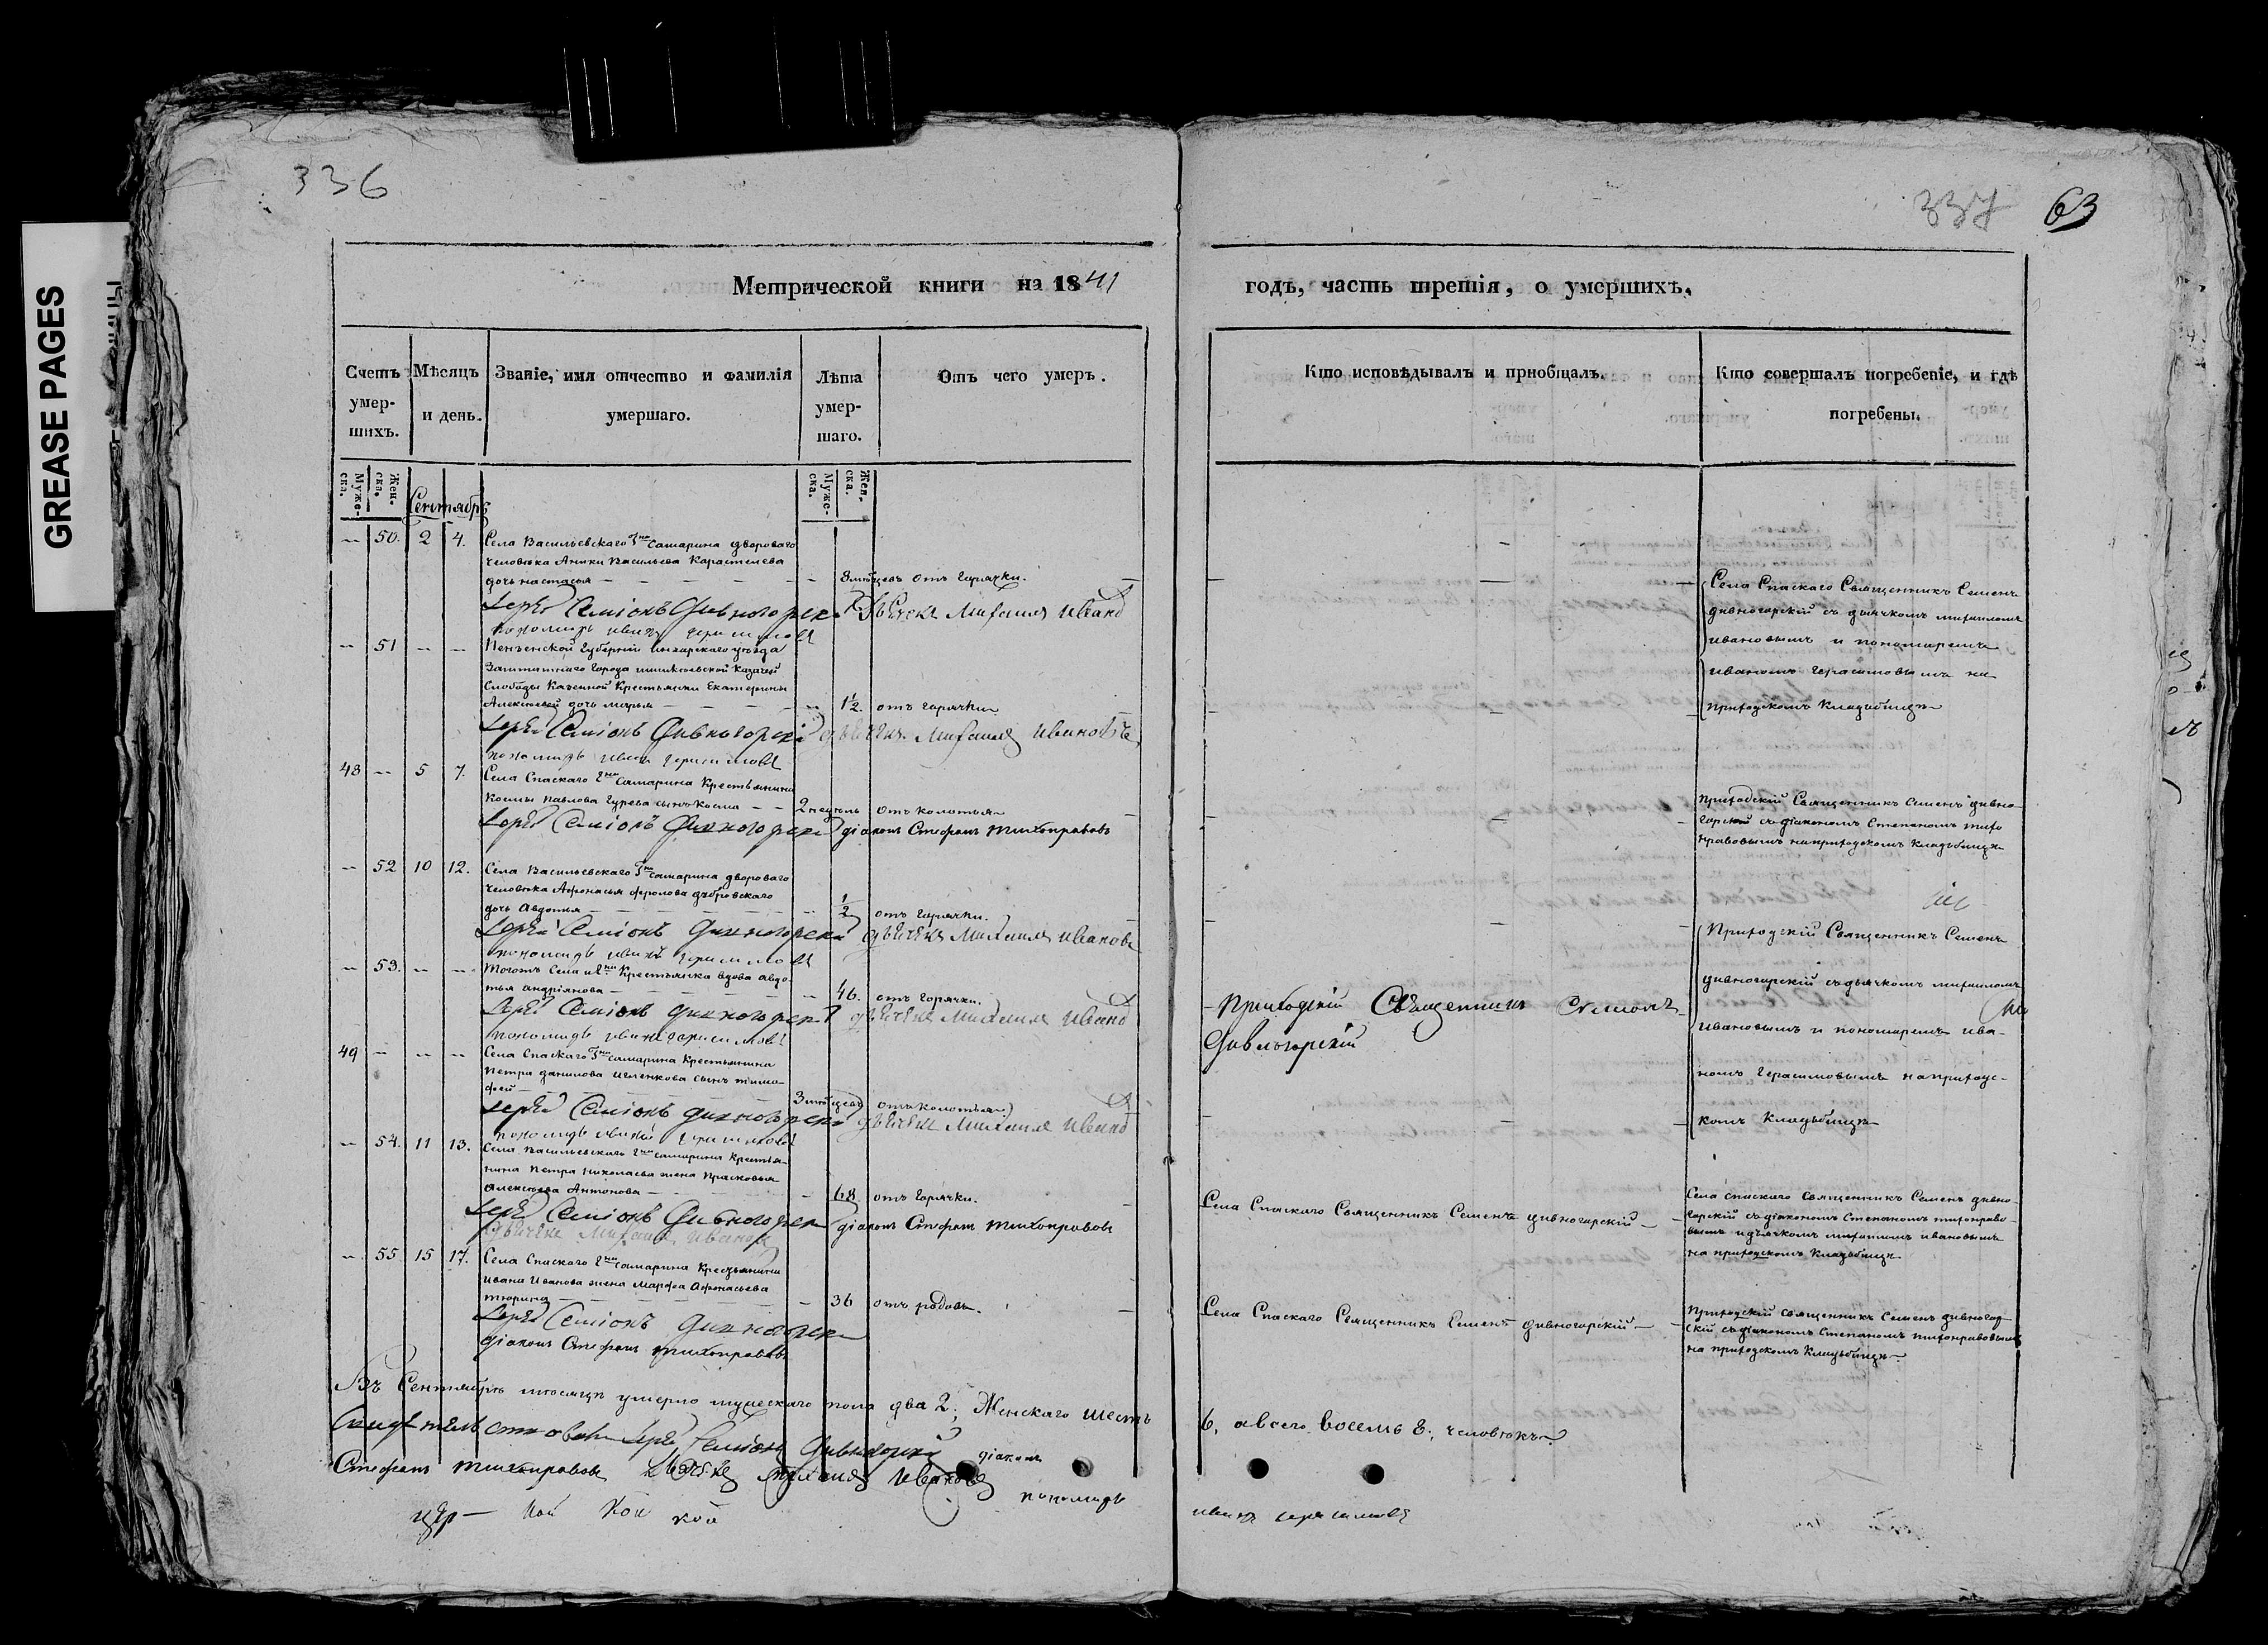 GREASE PAGES
336
337 63
Метрической книги на 1841
годъ, часть третія, о умершихъ.
Счетъ умер-шихъ.
Мѣсяцъ и день.
Званіе, имя отчество и фамилія умершаго.
Лѣта умер-шаго.
Отъ чего умеръ.
Кто исповѣдывалъ и пріобщалъ.
Кто совершалъ погребеніе, и гдѣ погребены.
Муже-ска. Жен-ска.
Сентябрь
Муже-ска. Жен-ска.
50. 2 4. Села Васильевскаго Гна Самарина двороваго
человека Аники Васильева Карастелева
дочь настасья 3 мѣсцевъ отъ горячки.
Іерей Семіонъ Дивногорскій Дьячекъ Михаилъ Иванов
пономарь иванъ герасимовъ
Села Спаскаго Священникъ Семенъ
дивногорскій съ дьячкомъ михаиломъ
ивановымъ и пономаремъ
иваномъ герасимовымъ на
приходскомъ кладьбищѣ
51 Пензенской губерніи инсарскаго уѣзда
Заштатнаго города шишкѣевской казачей
Слободы казенной крестьянки Екатерины
Алексѣевой дочь марья 1½. отъ горячки
Іерей Семіонъ Дивногорскій дьячекъ Михаилъ Ивановъ
пономарь иванъ герасимовъ
48 5 7. Села Спаскаго Гна Самарина Крестьянина
Космы Павлова Гурева сынъ Косма 2 недѣль отъ колотья
Іерей Семіонъ Дивногорскій діаконъ Стефанъ Тихонравовъ
приходскій Священникъ Семенъ дивно-
горскій съ діакономъ Степаномъ тихо
нравовымъ на приходскомъ кладьбищѣ
52 10 12. Села Васильевскаго Гна Самарина двороваго
человека Афонасья фролова дубровскаго
дочь Авдотья ½ отъ горячки.
Іерей Семіонъ Дивногорскій дьячекъ Михаилъ Ивановъ
пономарь иванъ герасимовъ
Приходскій Священникъ Семенъ
дивногорскій съ дьячкомъ михаиломъ
ивановымъ и пономаремъ ива-
номъ герасимовымъ на приходс-
комъ кладьбищѣ
53. Тогожъ Села и Гна Крестьянка вдова авдо-
тья андріянова 46. отъ горячки.
Іерей Семіонъ Дивногорскій дьячекъ Михаилъ Иванов
пономарь иванъ герасимовъ
Приходскій Священникъ Семіонъ
Дивногорскій
49 Села Спаскаго Гна Самарина Крестьянина
Петра данилова сынъ тимо-
фей 3 мѣсцевъ отъ колотья
Іерей Семіонъ Дивногорскій дьячекъ Михаилъ Иванов
пономарь иванъ герасимовъ
54. 11 13. Села Васильевскаго Гна Самарина Крестья-
нина Петра Николаева жена Прасковья
Алексѣева Антонова 68 отъ горячки.
Іерей Семіонъ Дивногорскій діаконъ Стефанъ Тихонравовъ
Дьячекъ Михаилъ Ивановъ
Села Спаскаго Священникъ Семенъ дивногорскій
Села спаскаго Священникъ Семенъ дивно-
горскій съ діакономъ Степаномъ тихонраво-
вымъ и дьячкомъ михаиломъ ивановымъ
на приходскомъ кладьбищѣ
55 15 17. Села Спаскаго Гна Самарина Крестьянина
Ивана Иванова жена Марфа Афонасьева
Тюрина 36 отъ родовъ.
Іерей Семіонъ Дивногорскій
діаконъ Стефанъ Тихонравовъ
Села Спаскаго Священникъ Семенъ дивногорскій
Приходскій священникъ Семенъ дивногор-
скій съ діакономъ Степаномъ тихонравовымъ
на приходскомъ кладьбищѣ.
Въ Сентябрѣ мѣсяцѣ умерло мужескаго пола два 2; Женскаго шесть
6, а всего восемь 8, человѣкъ.
Свидѣтельствовали Іерей Семіонъ Дивногорскій діаконъ
Стефанъ Тихонравовъ Дьячекъ Михаилъ Ивановъ пономарь
иванъ герасимовъ